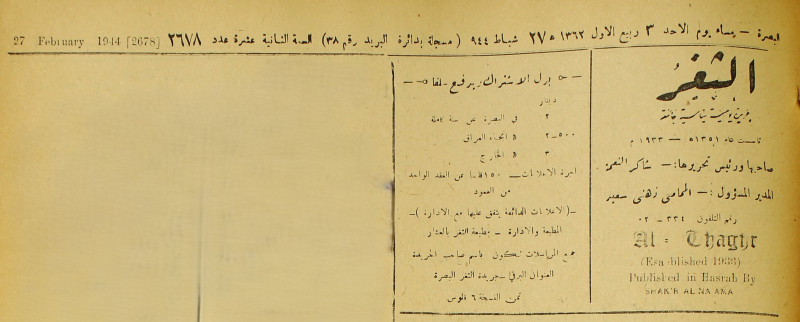 البصرة – مساء يوم الاحد ٣ ربيع الاول ١٣٦٢ ه ٢٧ شباط ٩٤٤ ( مسجلة بدائرة البريد رقم ٣٨) السنة الثانية عشرة عدد ٢٦٧٨ 27 February 1944 [2678]
الثغر
جريدة يومية سياسية جامعة
تاسست عام ١٣٥١ه – ١٩٣٣ م
صاحبها ورئيس تحريرها: – شاكر النعمة
المدير المسؤول: – المحامي ذهني سعيد
رقم التلفون ٣٣٤ – ٠٢
Al - Thaghr
(Established 1933)
Published in Basrah By
SHAKIR AL NAAMA
بدل الاشتراك ويدفع سلفا
دينار
٢ في البصرة عن سنة كاملة
٢–٥٠٠ « انحاء العراق
٣ « الخارج
اجرة الاعلانات – ١٥٠ فلسا عن العقد الواحد
من العمود
–(الاعلانات الدائمة يتفق عليها مع الادارة)–
المطبعة والادارة – مطبعة الثغر بالعشار
جميع المراسلات تكون باسم صاحب الجريدة
العنوان البرقي – جريدة الثغر البصرة
ثمن النسخة ٦ فلوس